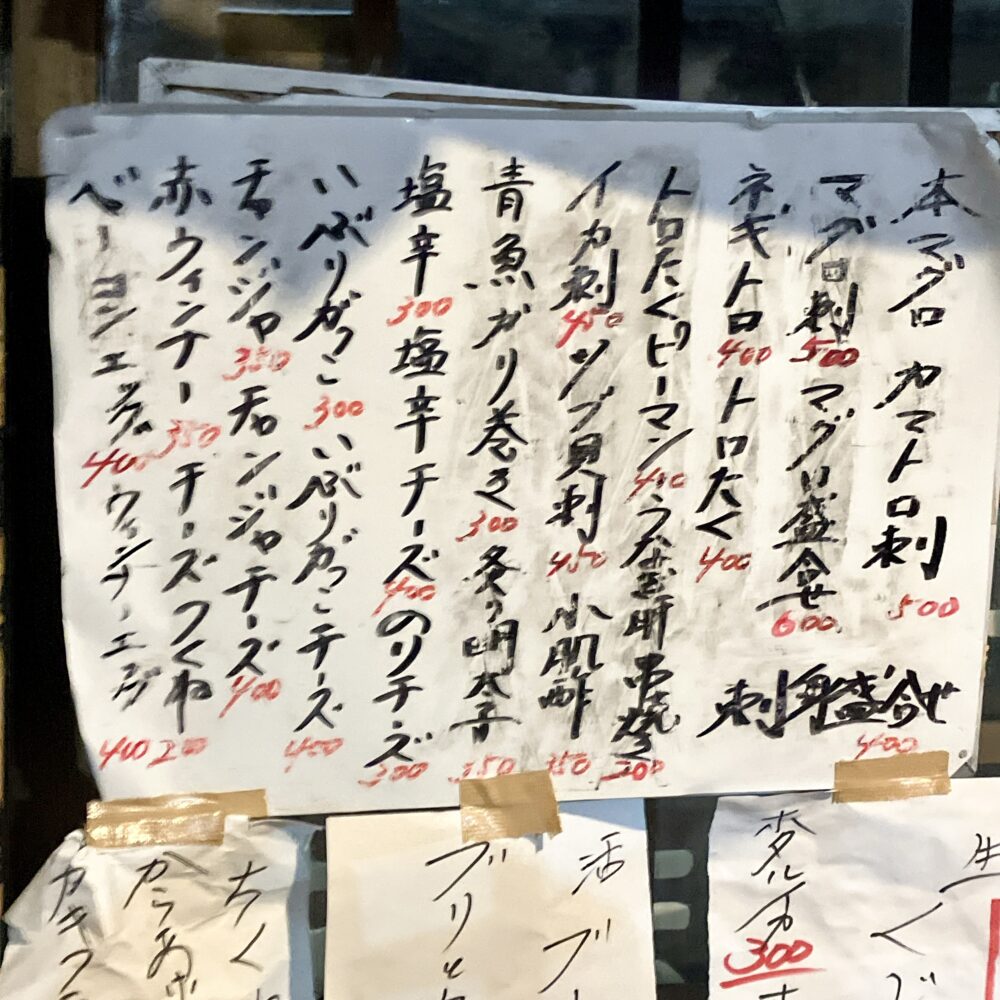 本マグロ カマトロ刺 500
マグロ刺 500 マグロ盛合せ 600
ネギトロ 400 トロたく 400
刺身盛合せ 400
トロたくピーマン 450 うなぎ肝串焼き 200
イカ刺 450 ツブ貝刺 450 小肌酢 350
青魚ガリ巻き 300 炙り明太子 350
塩辛 300 塩辛チーズ 400 のりチーズ 300
いぶりがっこ 300 いぶりがっこチーズ 400
チャンジャ 350 チャンジャチーズ 400
赤ウィンナー 350 チーズつくね 200
ベーコンエッグ 400 ウィンナーエッグ 400
生
くぶ
麦タルイカ
300
活ブ
ブリと
ちく
からあげ
カキフラ